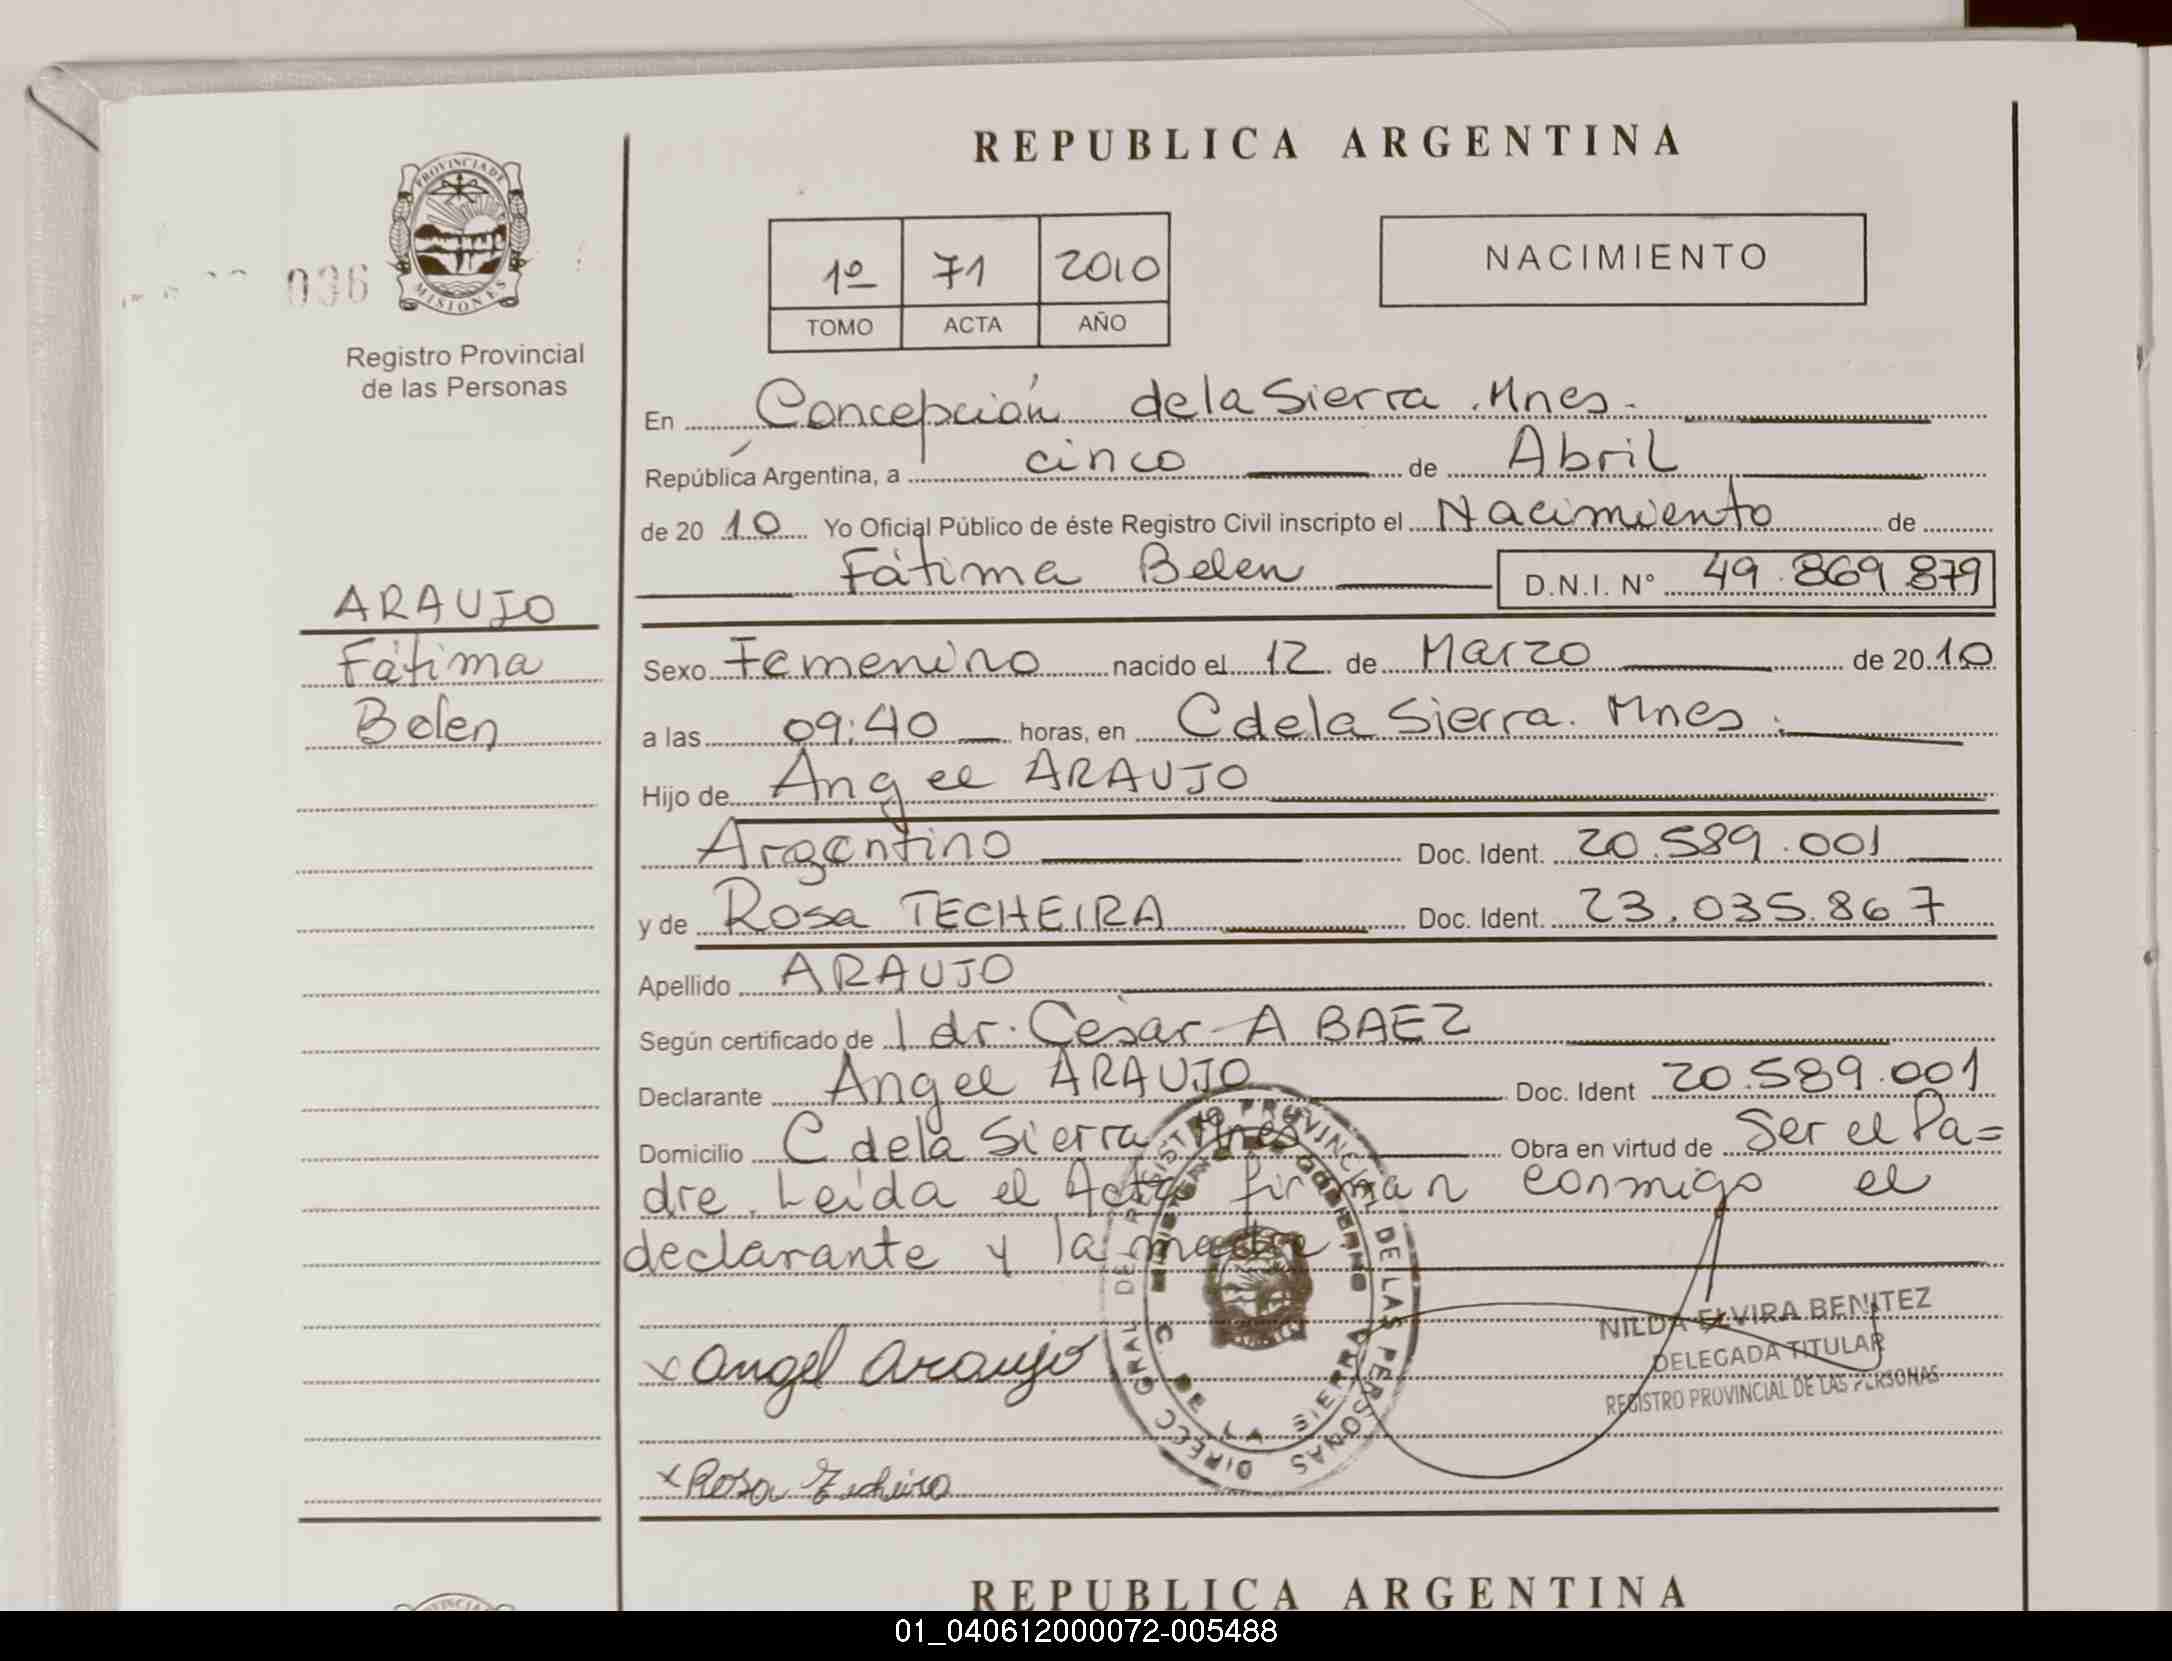 REPUBLICA ARGENTINA
PROVINCIA DE MISIONES
036
Registro Provincial
de las Personas
1º 71 2010
TOMO ACTA AÑO
NACIMIENTO
En Concepción de la Sierra. Mnes.
República Argentina, a cinco de Abril
de 20 10 Yo Oficial Público de éste Registro Civil inscripto el Nacimiento de
Fátima Belen D.N.I. Nº 49.869.879
ARAUJO
Fátima
Belen
Sexo Femenino nacido el 12 de Marzo de 20 10
a las 09:40 horas, en C de la Sierra. Mnes.
Hijo de Angel ARAUJO
Argentino Doc. Ident. 20.589.001
y de Rosa TECHEIRA Doc. Ident. 23.035.867
Apellido ARAUJO
Según certificado de l dr. Cesar A BAEZ
Declarante Angel ARAUJO Doc. Ident 20.589.001
Domicilio C de la Sierra Mnes Obra en virtud de Ser el Pa=
dre. Leída el Acta firman conmigo el
declarante y la madre.
x Angel Araujo
x Rosa Techeira
DIRECC GRAL DE REGISTRO PROVINCIAL DE LAS PERSONAS
MINISTERIO DE GOBIERNO
C. DE LA SIERRA
NILDA ELVIRA BENITEZ
DELEGADA TITULAR
REGISTRO PROVINCIAL DE LAS PERSONAS
REPUBLICA ARGENTINA
01_040612000072-005488